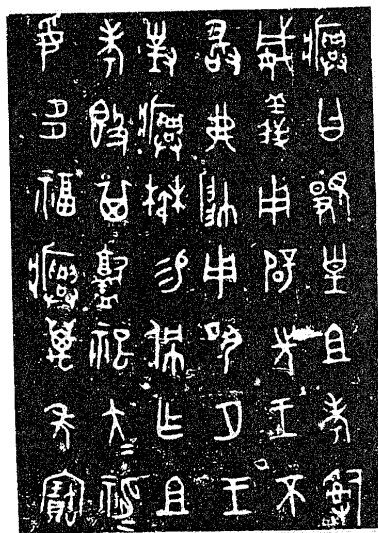 𤼈曰覭皇且考𤔲
威義用辟先王不
敢弗帥用夙夕王
對𤼈楙易佩乍且
考簋其祀大=神=
妥多福𤼈萬年寶